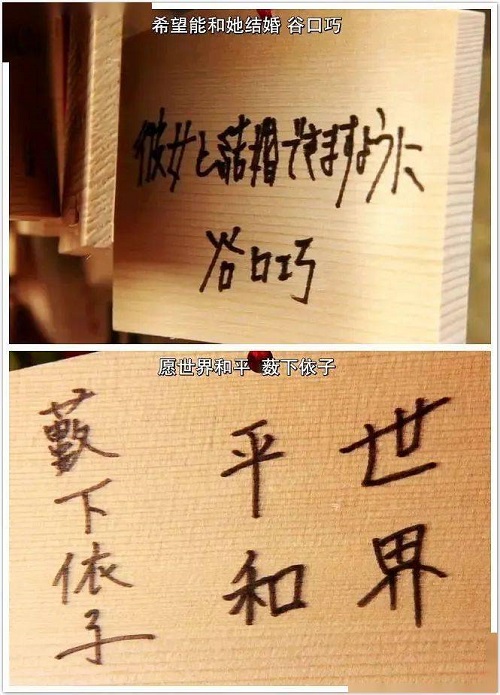 希望能和她结婚 谷口巧
彼女と結婚できますように
谷口巧
愿世界和平 薮下依子
世界
平和
藪下依子